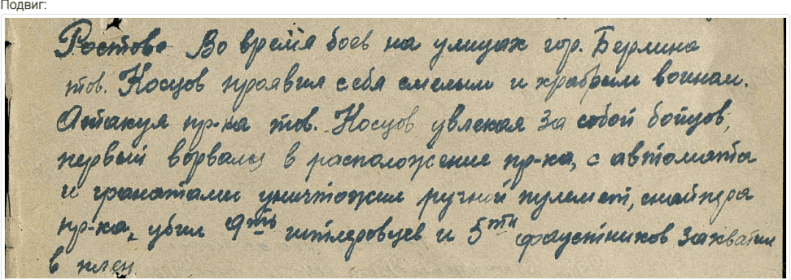 Подвиг:
Ростово Во время боев на улицах гор. Берлина
тов. Косцов проявил себя смелым и храбрым воином.
Антакуя пр-ка тов. Косцов увлекая за собой бойцов,
первый ворвался в расположение пр-ка, с автомата
и гранатами уничтожил ручной пулемет, снайпера
пр-ка, убил 9ть гитлеровцев и 5ти фаустников захватил
в плен.